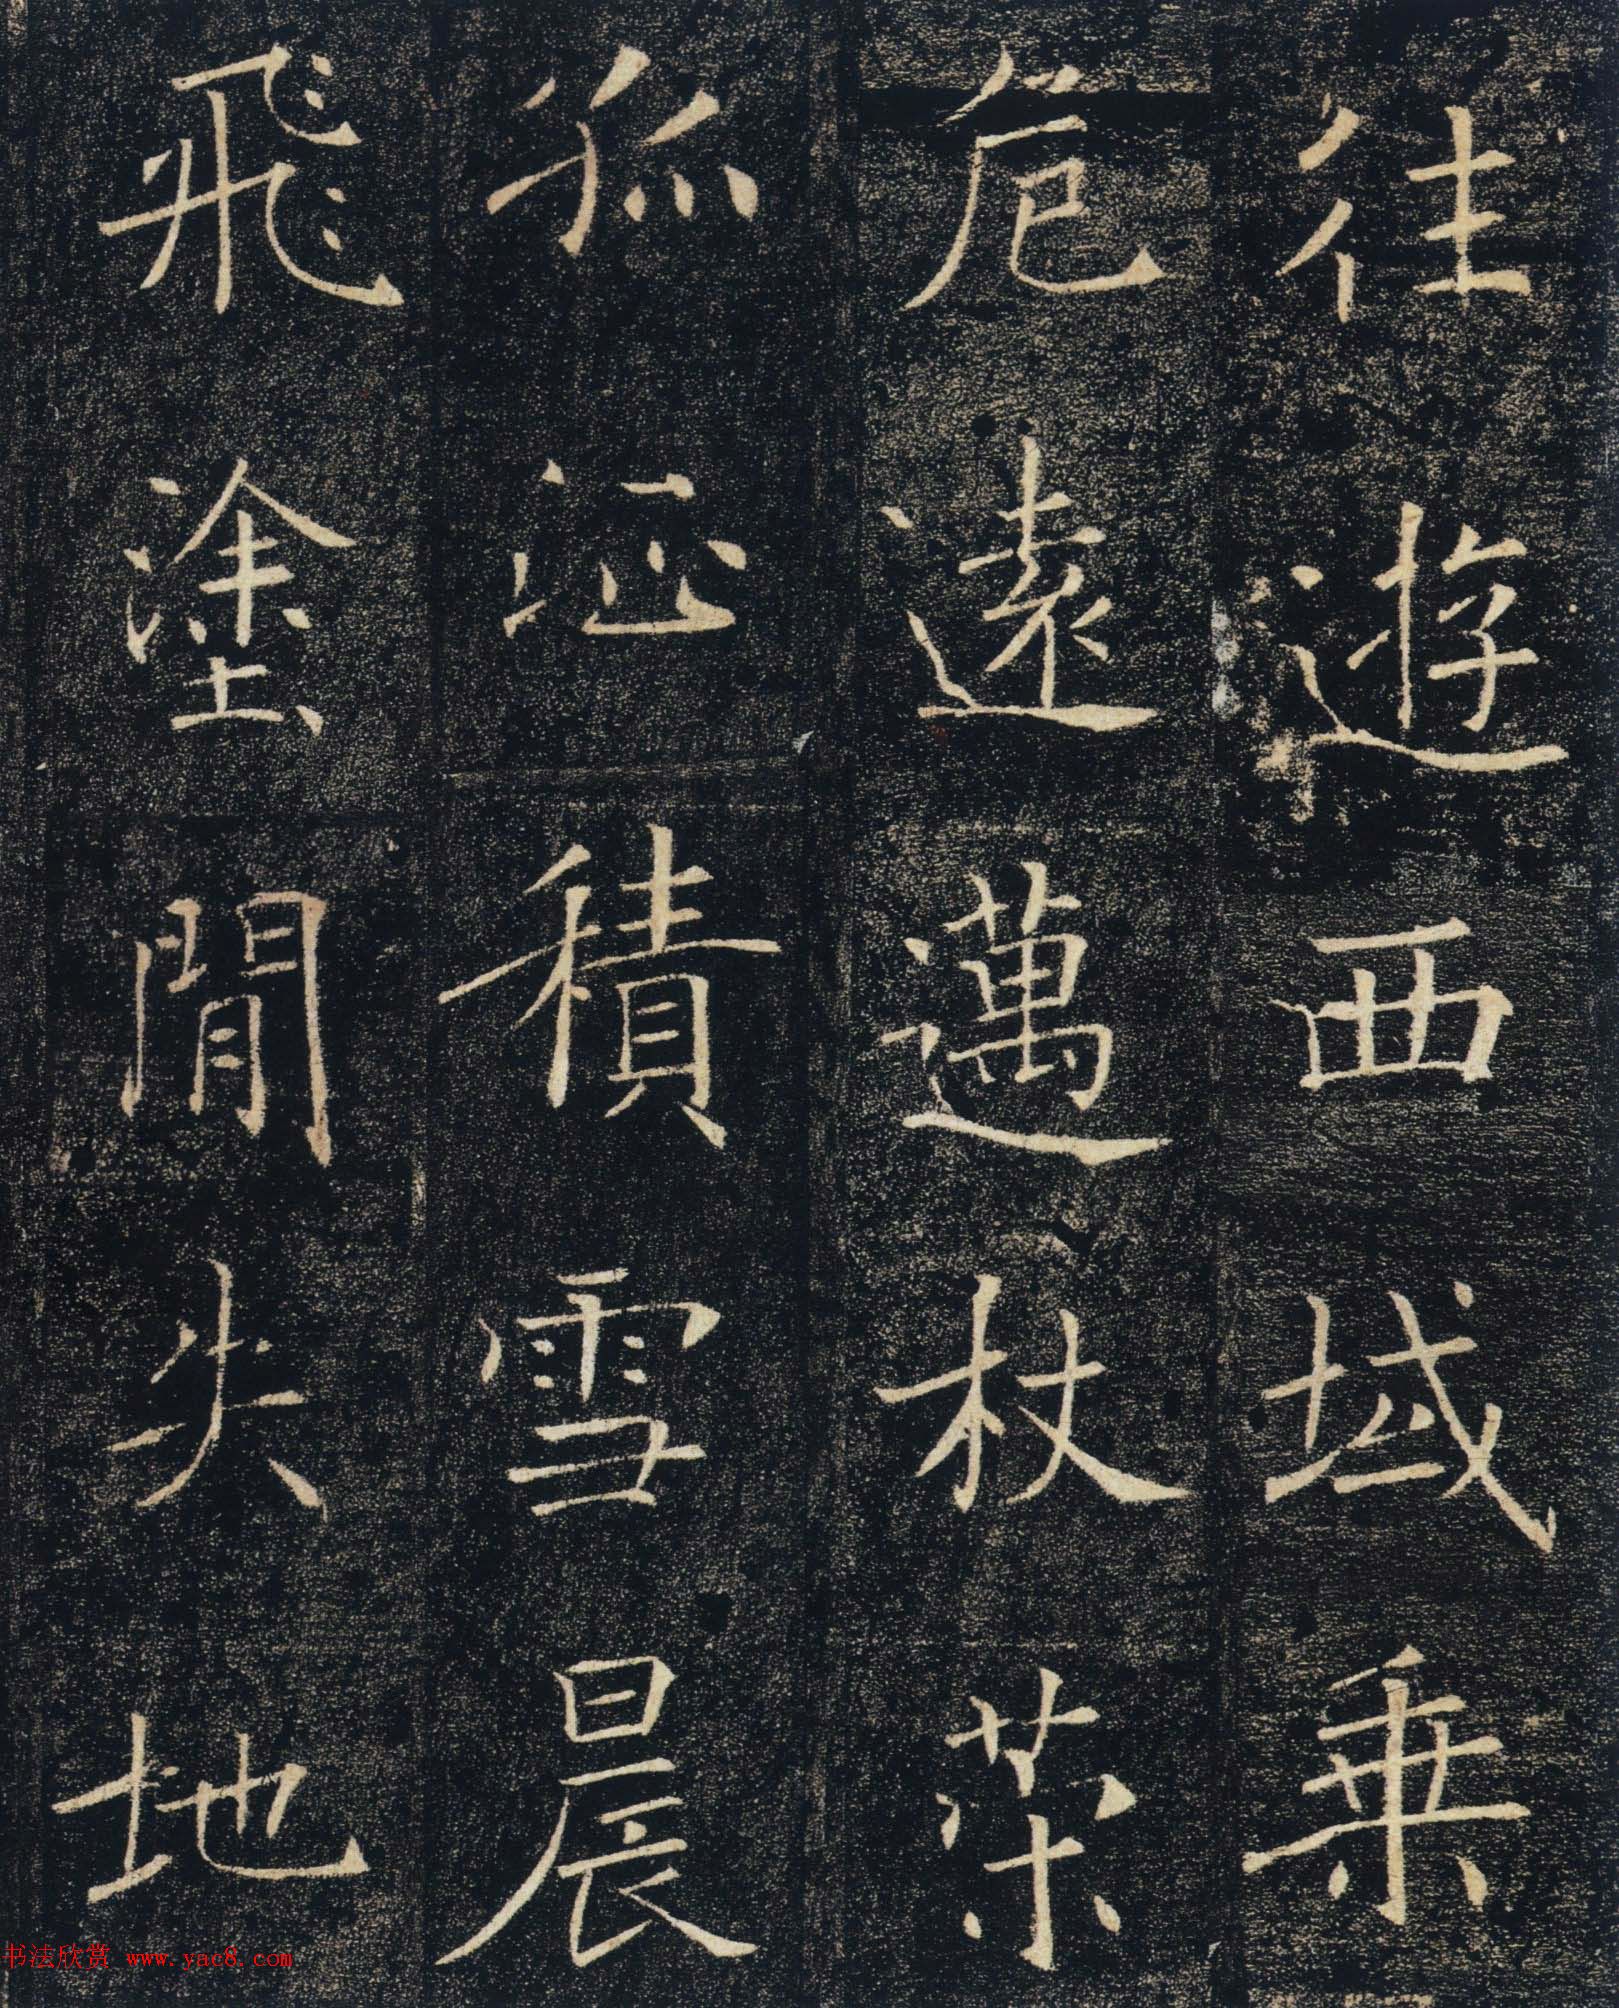 往遊西域乗
危遠邁杖茦
孤征積雪晨
飛塗閒失地
书法欣赏 www.yac8.com